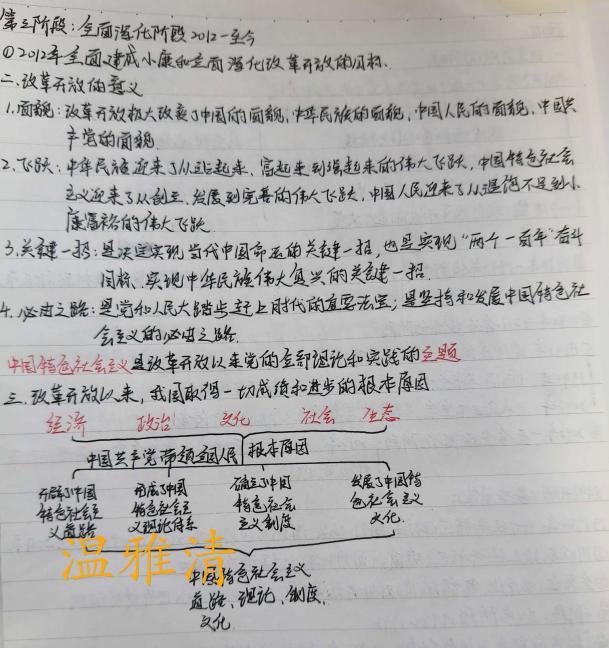 第三阶段：全面深化阶段 2012－至今
①2012年全面建成小康和全面深化改革开放的目标.
二.改革开放的意义
1.面貌：改革开放极大改变了中国的面貌，中华民族的面貌，中国人民的面貌，中国共
产党的面貌
2.飞跃：中华民族迎来了从站起来、富起来到强起来的伟大飞跃，中国特色社会
主义迎来了从创立、发展到完善的伟大飞跃，中国人民迎来了从温饱不足到小
康富裕的伟大飞跃.
3.关键一招：是决定实现当代中国命运的关键一招，也是实现“两个一百年”奋斗
目标、实现中华民族伟大复兴的关键一招.
4.必由之路：是党和人民大踏步赶上时代的重要法宝；是坚持和发展中国特色社
会主义的必由之路.
中国特色社会主义是改革开放以来党的全部理论和实践的主题
三.改革开放以来，我国取得一切成绩和进步的根本原因
经济 政治 文化 社会 生态
中国共产党带领全国人民 根本原因
开辟了中国 形成了中国 确立了中国 发展了中国特
特色社会主 特色社会主 特色社会 色社会主义
义道路 义理论体系 主义制度 文化.
温雅清
中国特色社会主义
道路、理论、制度、
文化